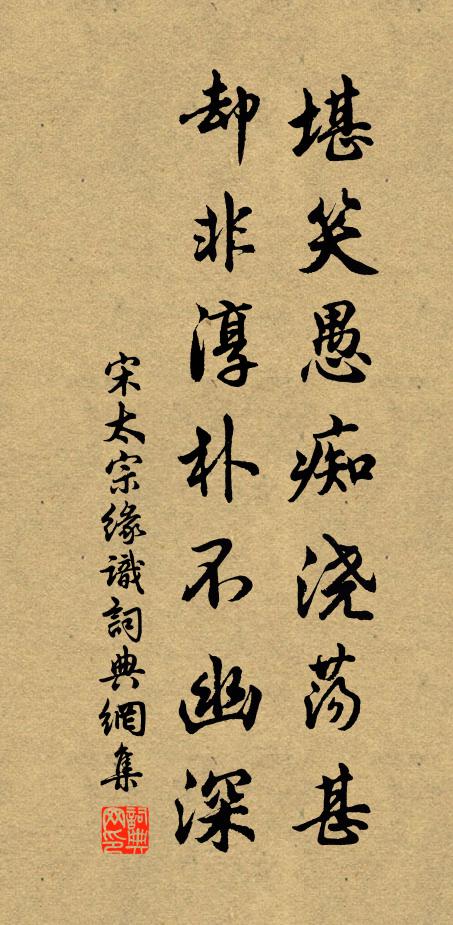 堪笑愚痴浇荡甚
却非淳朴不幽深
宋太宗缘識詞典網集
詞典网印